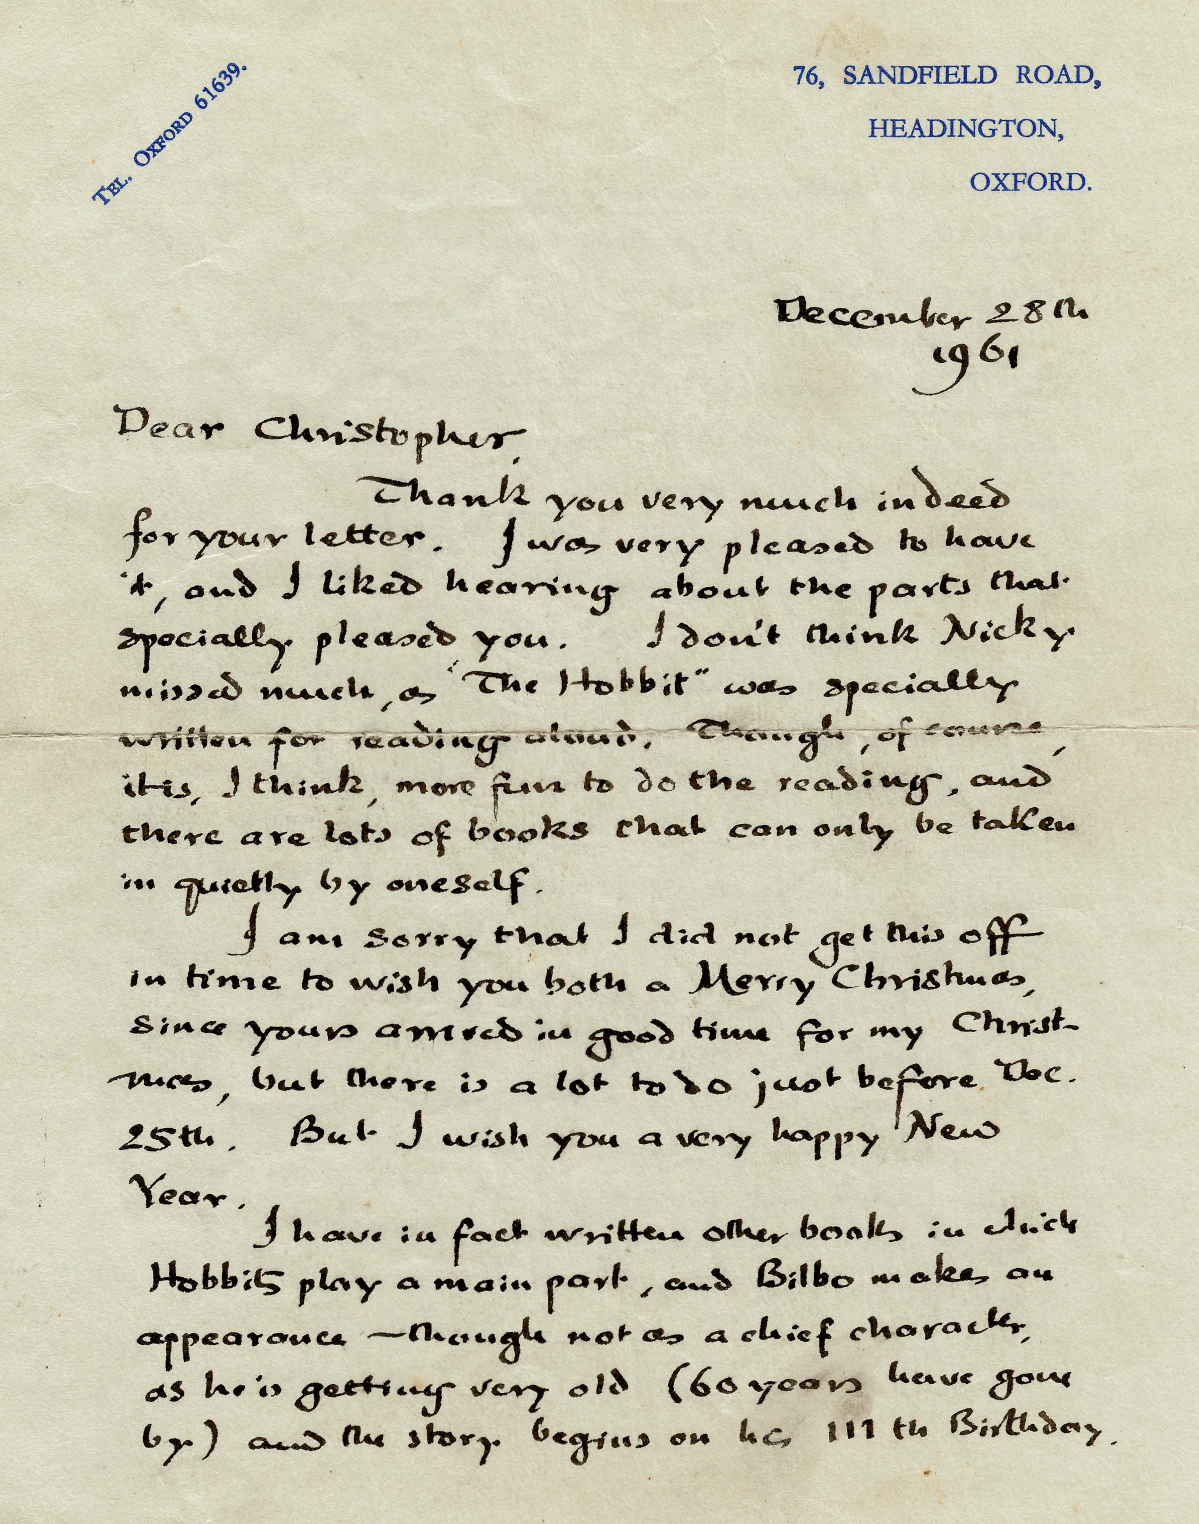 TEL. OXFORD 61639.
76, SANDFIELD ROAD,
HEADINGTON,
OXFORD.
December 28th
1961
Dear Christopher,
Thank you very much indeed
for your letter. I was very pleased to have
it, and I liked hearing about the parts that
specially pleased you. I don't think Nicky
missed much, as "The Hobbit" was specially
written for reading aloud. Though, of course,
it is, I think, more fun to do the reading, and
there are lots of books that can only be taken
in quietly by oneself.
I am sorry that I did not get this off
in time to wish you both a Merry Christmas,
since yours arrived in good time for my Christ-
mas, but there is a lot to do just before Dec.
25th. But I wish you a very happy New
Year.
I have in fact written other books in which
Hobbits play a main part, and Bilbo makes an
appearance — though not as a chief character,
as he is getting very old (60 years have gone
by) and the story begins on his 111th Birthday.